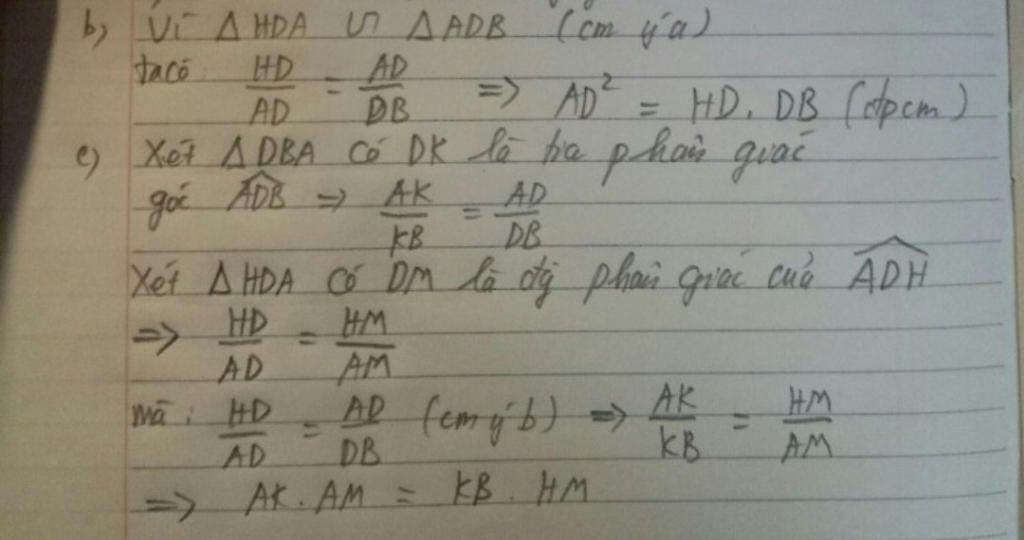 b) Vì Δ HDA ∽ Δ ADB (cm ý a)
ta có: HD/AD = AD/DB => AD² = HD. DB (đpcm)
c) Xét Δ DBA có DK là tia phân giác
góc ADB̂ => AK/KB = AD/DB
Xét Δ HDA có DM là đg phân giác của ADĤ
=> HD/AD = HM/AM
mà: HD/AD = AD/DB (cm ý b) => AK/KB = HM/AM
=> AK. AM = KB. HM